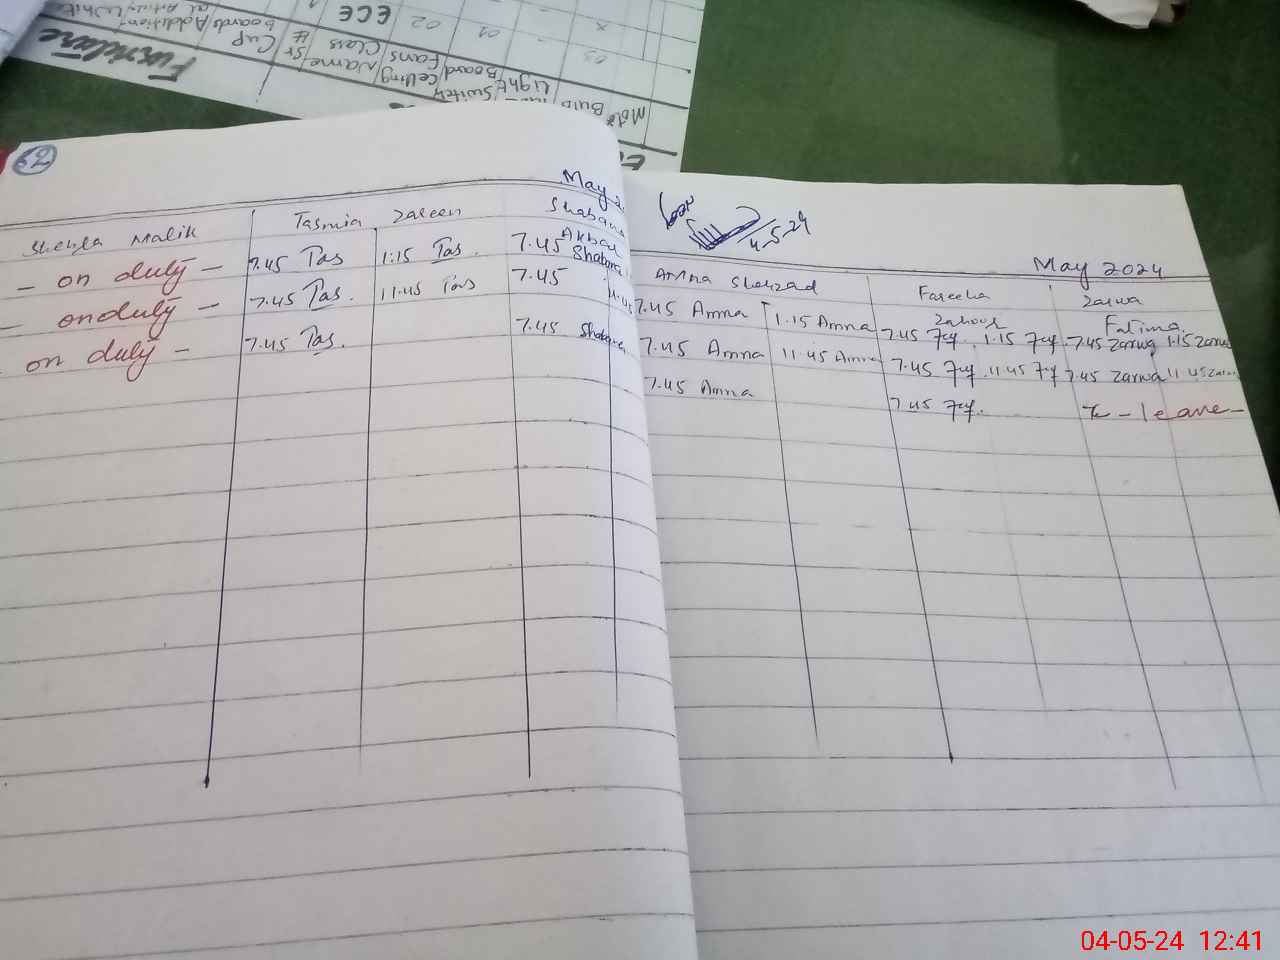 Furniture
Cup boards
Addition
White
Name
Class
ECE
Ceiling Fans
Switch Board
Light
Bulb
01
02
03
May 2
Shehla Malik
Tasmia Zareen
Shabana Akbar
- on duty -
7.45 Tas
1:15 Tas.
7.45 Shabana
- on duty -
7.45 Tas.
11.45 Tas
7.45
11.45
on duty -
7.45 Tas.
7.45 Shabana
4-5-24
May 2024
Amna Shehzad
Fareeha Zahoor
Zarwa Fatima.
7.45 Amna
1.15 Amna
7.45 Fef.
1.15 Fef.
7.45 Zarwa
1.15 Zarwa
7.45 Amna
11.45 Amna
7.45 Fef.
11.45 Fef
7.45 Zarwa
11.45 Zarwa
7.45 Amna
7.45 Fef.
- leave -
04-05-24 12:41